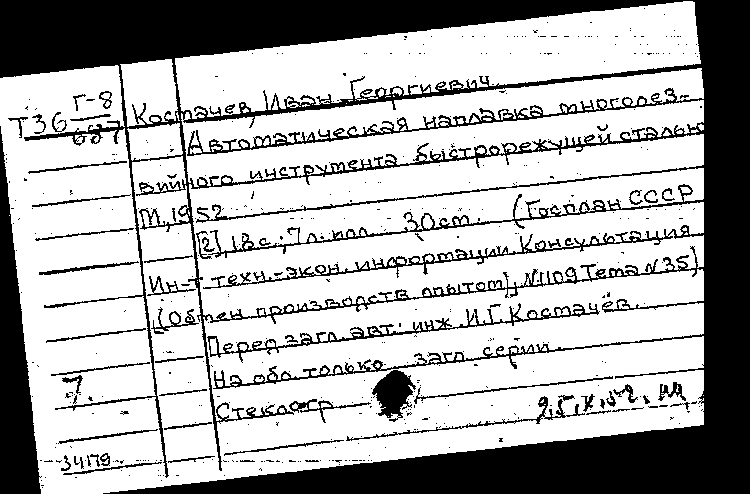 Г-8
Т36 687
Костачев, Иван Георгиевич
Автоматическая наплавка многолез-
вийного инструмента быстрорежущей сталью
М., 1952
[2], 18 с.; 7 л. илл. 30 см. (Госплан СССР
Ин-т техн.-экон. информации. Консультация
(Обмен производств. опытом), N1109 Тема N35)
Перед загл. авт.: инж. И.Г. Костачёв.
На обл. только загл. серии.
7.
Стеклогр
25.X.52.
34179